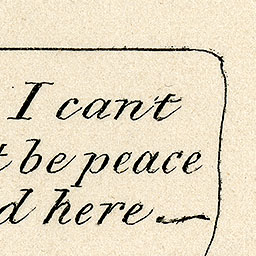 I cant
t be peace
d here —